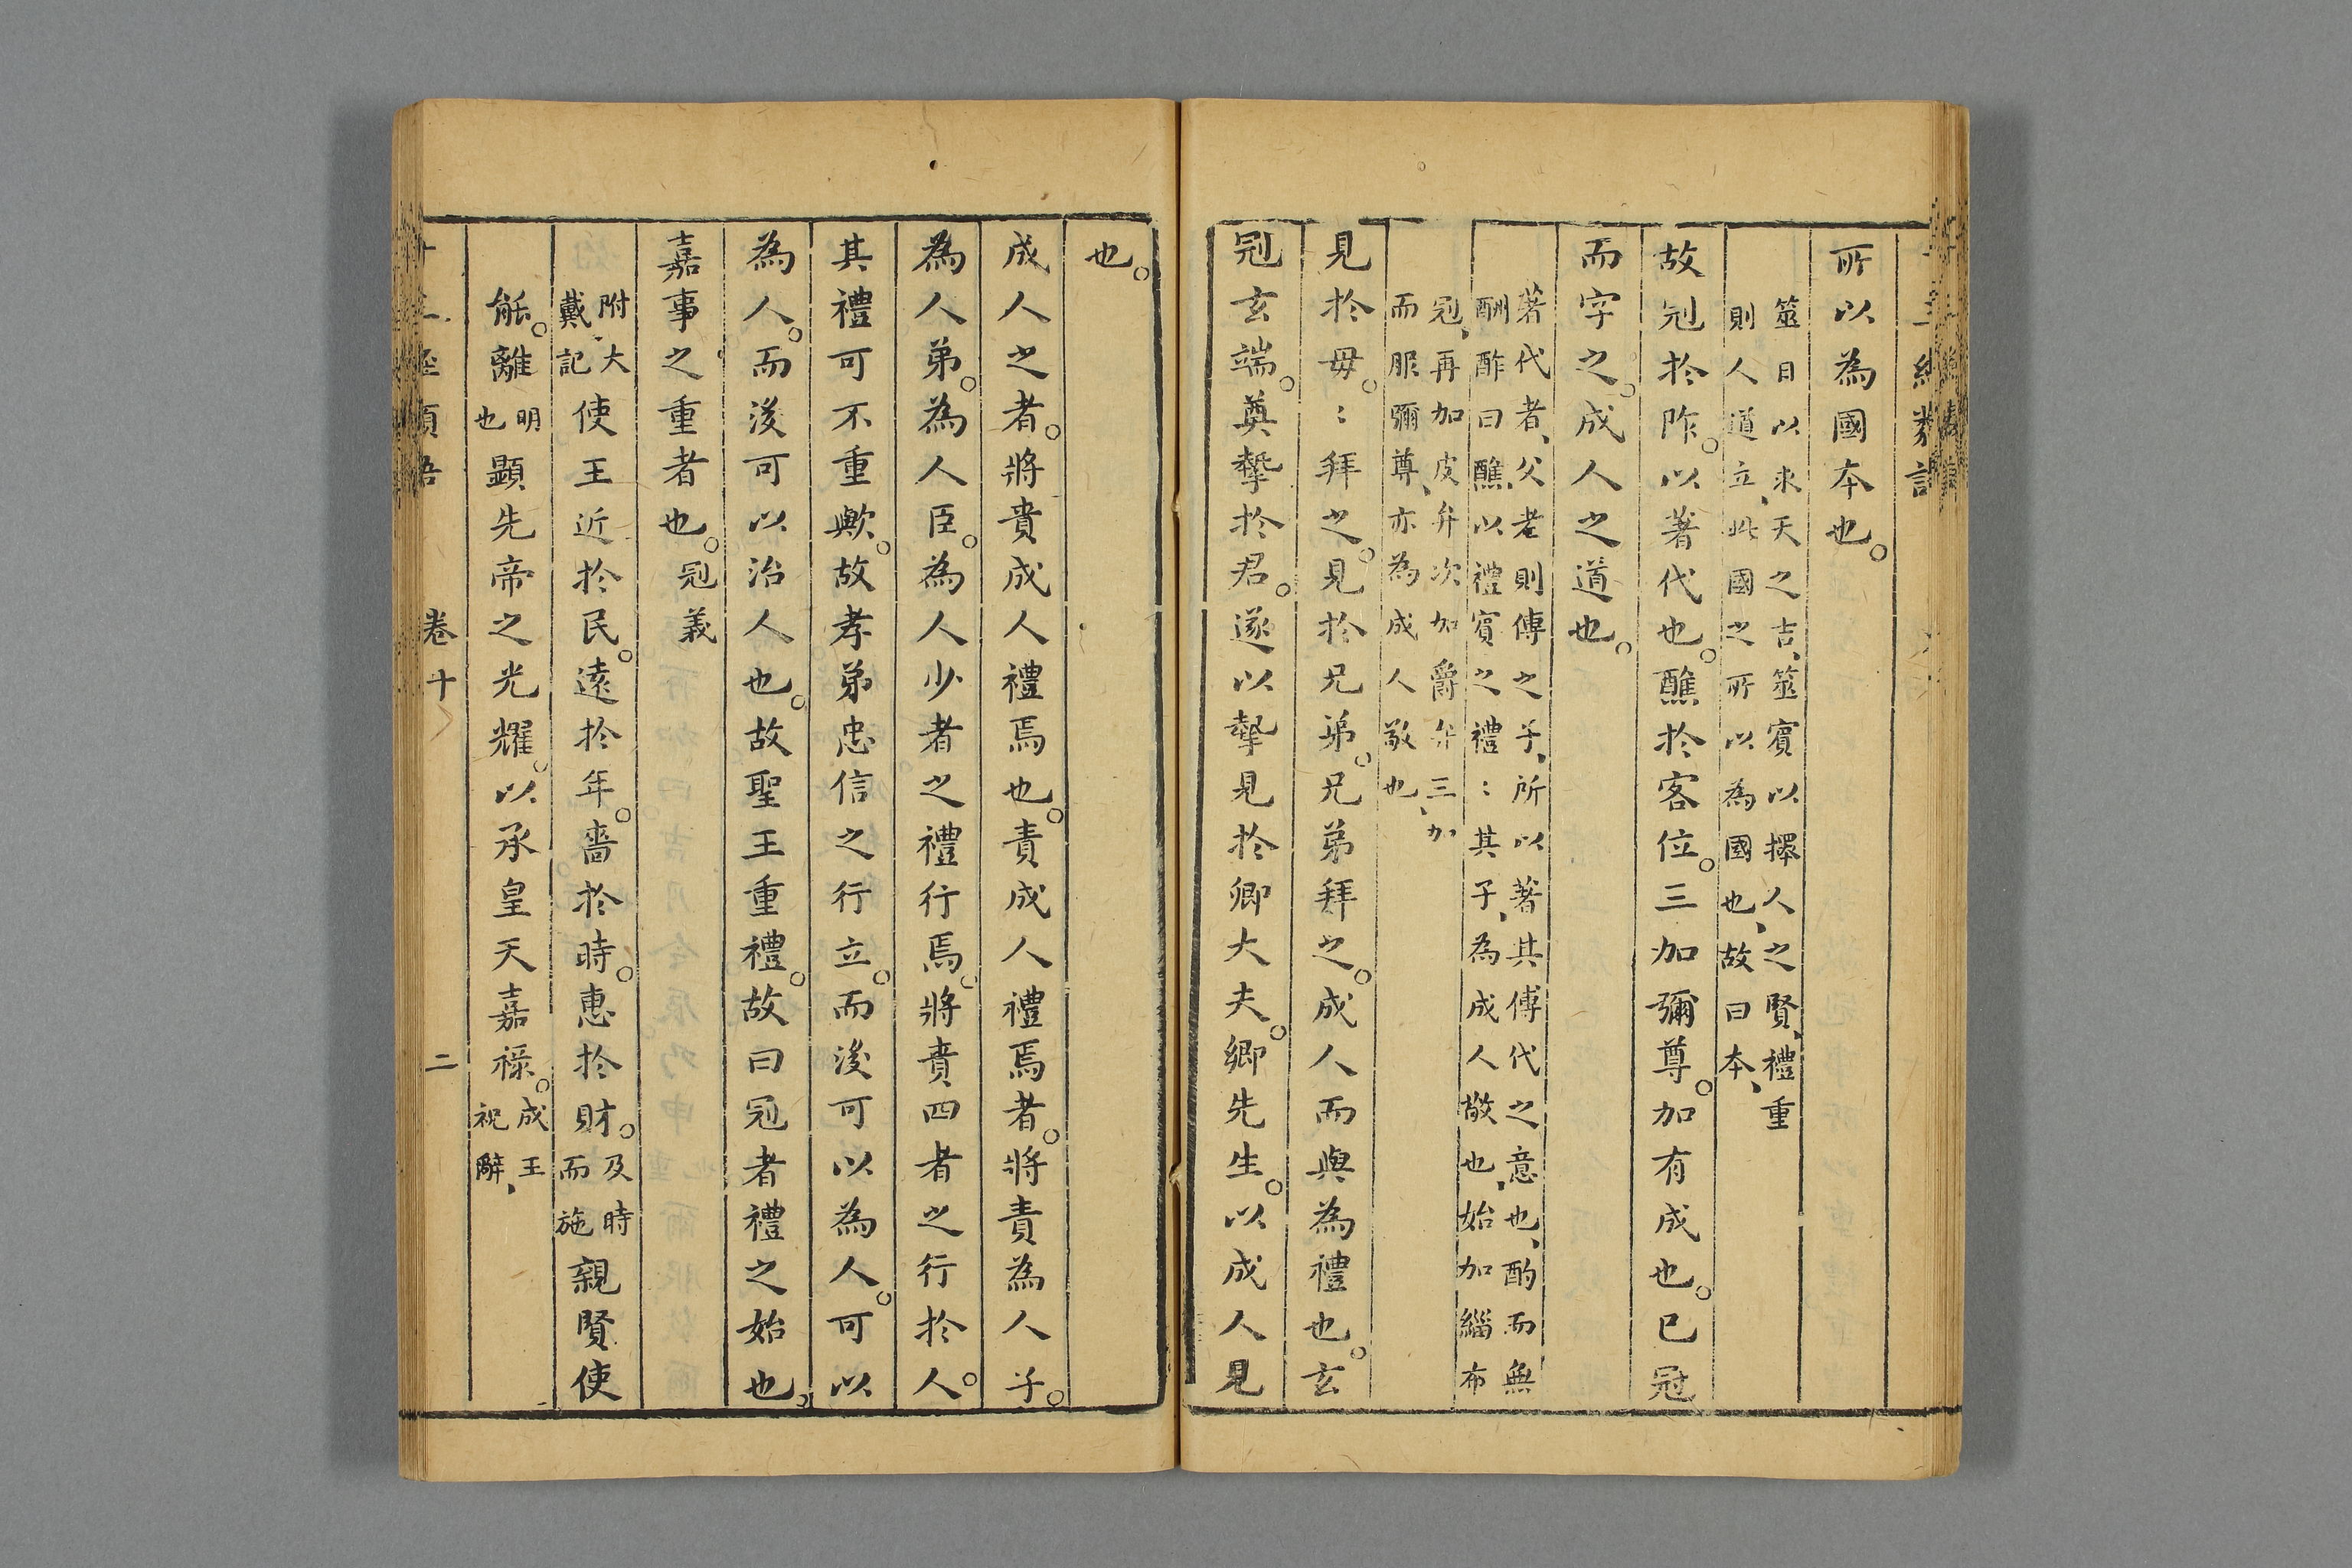 所以為國本也。
筮日以求天之吉、筮賓以擇人之賢、禮重
則人道立、此國之所以為國也、故曰本、
故冠於阼。以著代也。醮於客位。三加彌尊。加有成也。已冠
而字之。成人之道也。
著代者、父老則傳之子、所以著其傳代之意也、酌而無
酬酢曰醮、以禮賓之禮〻其子、為成人敬也、始加緇布
冠、再加皮弁次加爵弁三加
而服彌尊、亦為成人敬也、
見於母。〻拜之。見於兄弟。兄弟拜之。成人而與為禮也。玄
冠玄端。奠摯於君。遂以摯見於卿大夫。鄉先生。以成人見
也。
成人之者。將責成人禮焉也。責成人禮焉者。將責為人子。
為人弟。為人臣。為人少者之禮行焉。將責四者之行於人。
其禮可不重歟。故孝弟忠信之行立。而後可以為人。可以
為人。而後可以治人也。故聖王重禮。故曰冠者禮之始也。
嘉事之重者也。冠義
附大戴記使王近於民。遠於年。嗇於時。惠於財。及時而施親賢使
能。離明也顯先帝之光耀。以承皇天嘉祿。成王祝辭、
卷十
二